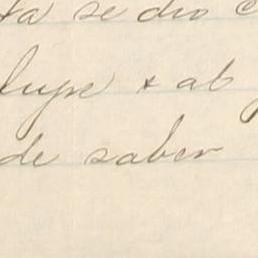 ta se dio c
lupe + ab
de saber